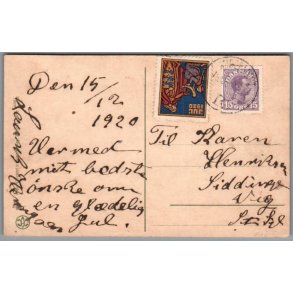 Den 15/12
1920
Vermed
mit bedste
ønske om
en glædelig
Jul.
Til Karen
Henriksen
Siddinge
Vig
JUL
1920
DANMARK
15 ØRE 15